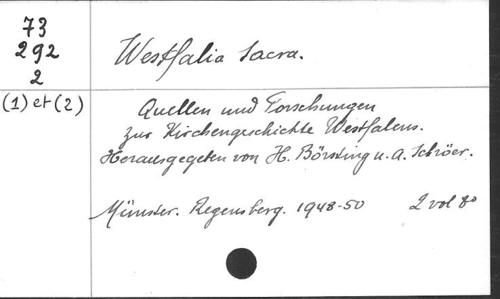 73
292
2
(1) et (2)
Westfalia Sacra.
Quellen und Forschungen
zur Kirchengeschichte Westfalens.
Herausgegeben von H. Börsting u. A. Schröer.
Münster. Regensberg. 1948-50 2 vol 8°